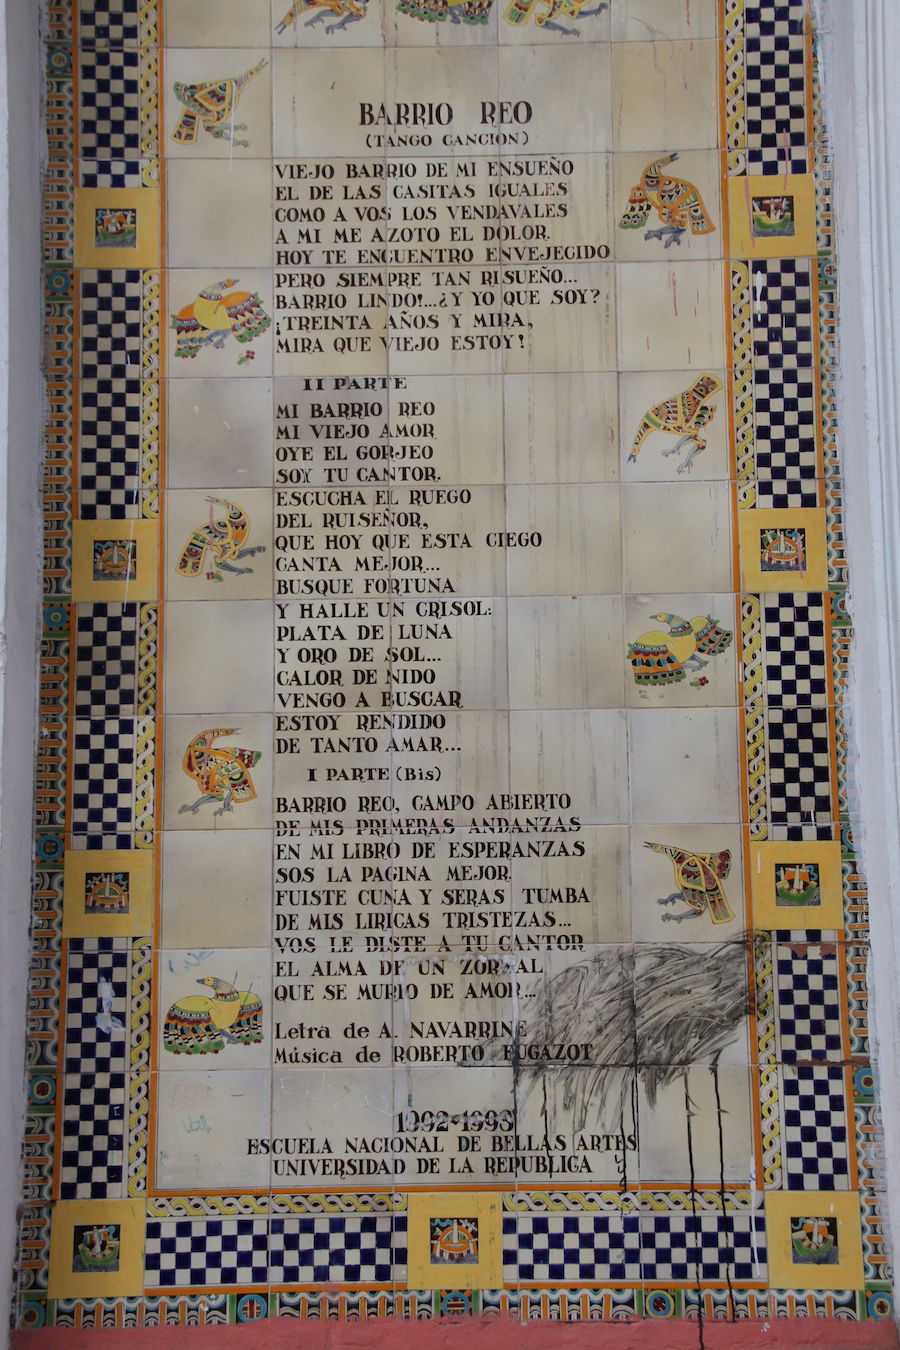 BARRIO REO
(TANGO CANCION)
VIEJO BARRIO DE MI ENSUEÑO
EL DE LAS CASITAS IGUALES
COMO A VOS LOS VENDAVALES
A MI ME AZOTO EL DOLOR.
HOY TE ENCUENTRO ENVEJECIDO
PERO SIEMPRE TAN RISUEÑO...
BARRIO LINDO!...¿Y YO QUE SOY?
¡TREINTA AÑOS Y MIRA,
MIRA QUE VIEJO ESTOY!
II PARTE
MI BARRIO REO
MI VIEJO AMOR
OYE EL GORJEO
SOY TU CANTOR.
ESCUCHA EL RUEGO
DEL RUISEÑOR,
QUE HOY QUE ESTA CIEGO
CANTA MEJOR...
BUSQUE FORTUNA
Y HALLE UN CRISOL:
PLATA DE LUNA
Y ORO DE SOL...
CALOR DE NIDO
VENGO A BUSCAR
ESTOY RENDIDO
DE TANTO AMAR...
I PARTE (Bis)
BARRIO REO, CAMPO ABIERTO
DE MIS PRIMERAS ANDANZAS
EN MI LIBRO DE ESPERANZAS
SOS LA PAGINA MEJOR.
FUISTE CUNA Y SERAS TUMBA
DE MIS LIRICAS TRISTEZAS...
VOS LE DISTE A TU CANTOR
EL ALMA DE UN ZORZAL
QUE SE MURIO DE AMOR...
Letra de A. NAVARRINE
Música de ROBERTO FUGAZOT
1992-1993
ESCUELA NACIONAL DE BELLAS ARTES
UNIVERSIDAD DE LA REPUBLICA